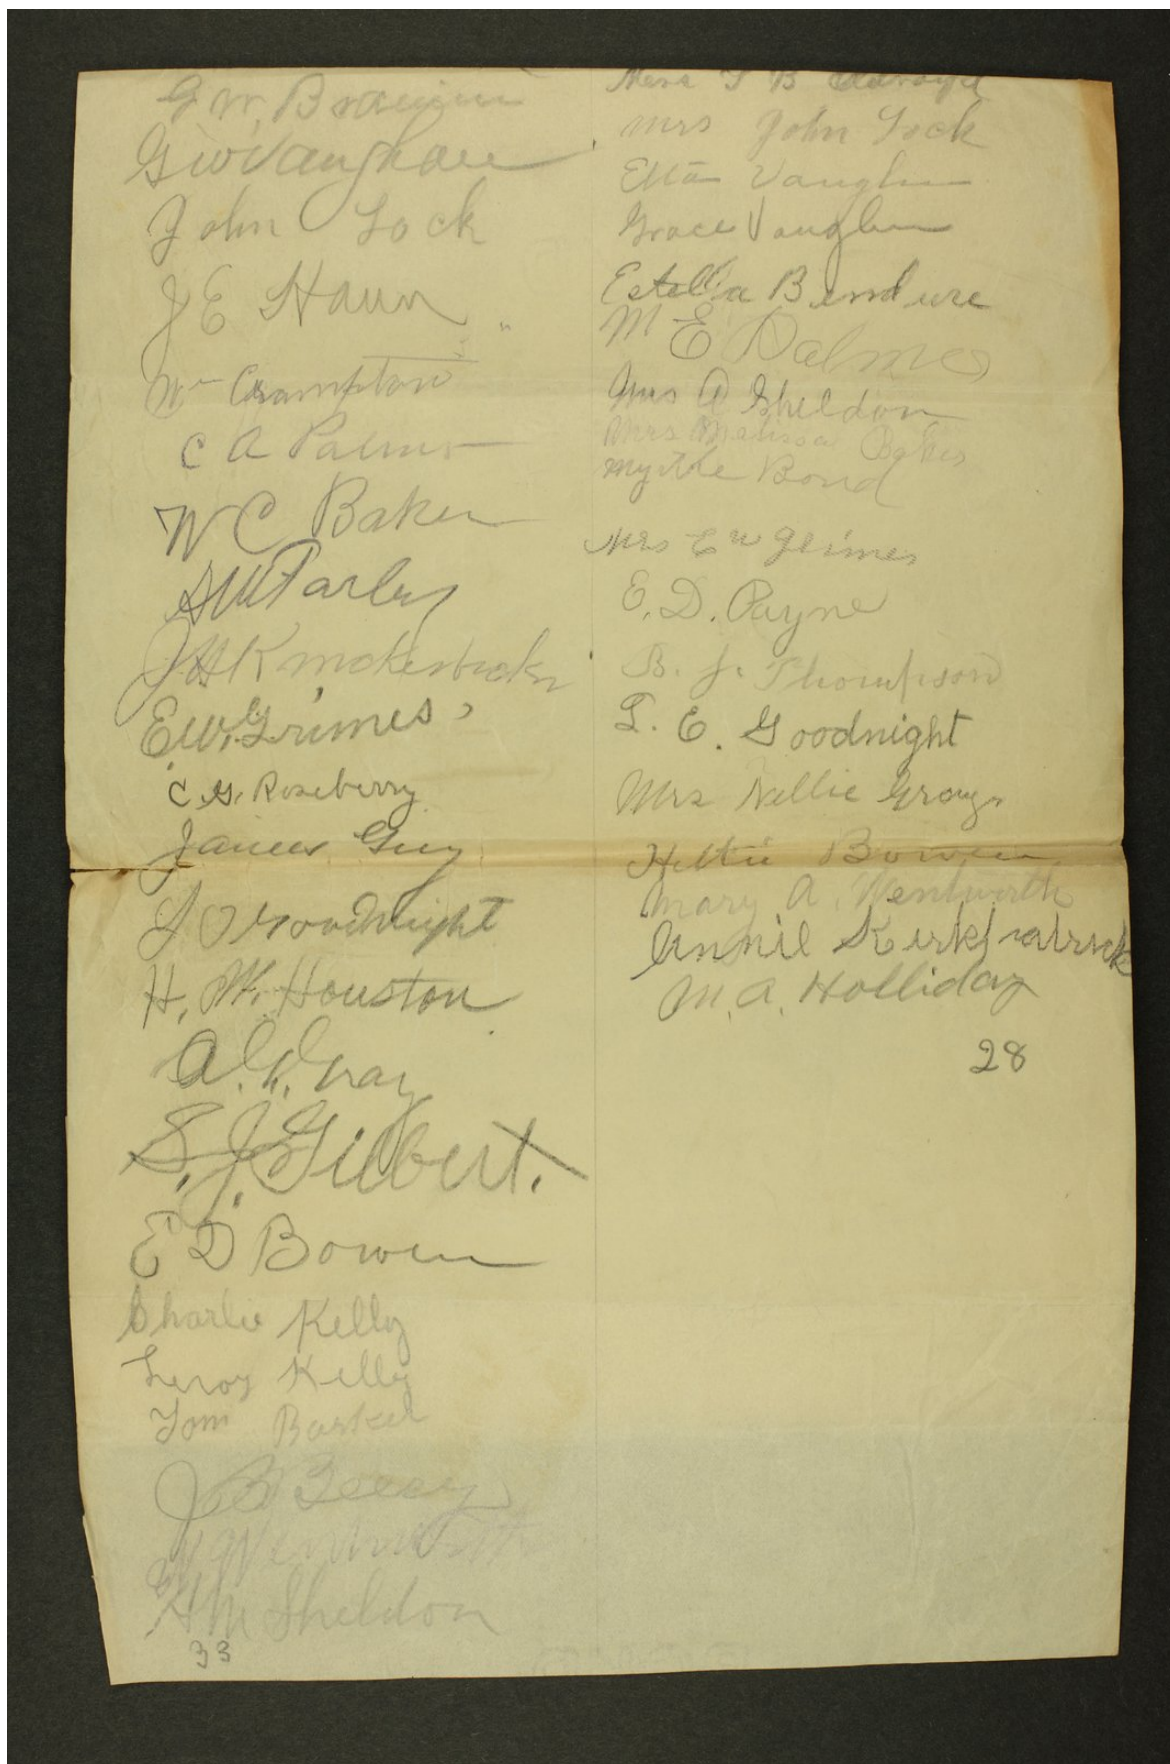 G. W.
G W Vaughan
John Lock
J E Haun
Wm Crampton
C A Palmer
W C Baker
Farley
J H Knickerbocker
E. W. Grimes,
C. G. Roseberry
James Guy
J O Goodnight
H. M. Houston
A. W. Gray
S. J. Gilbert.
E D Bowen
Charlie Kelly
Leroy Kelly
Tom
J B
Wentworth
H M Sheldon
33
B
Mrs John Lock
Etta Vaughn
Grace Vaughn
Estella Bendure
M E Palmer
Mrs A Sheldon
Mrs Malissa Baker
Myrtle Bond
Mrs E W Grimes
E. D. Payne
B. J. Thompson
L. E. Goodnight
Mrs Nellie
Hettie Bowen
Mary A. Wentworth
Annie Kirkpatrick
M. A. Holliday
28